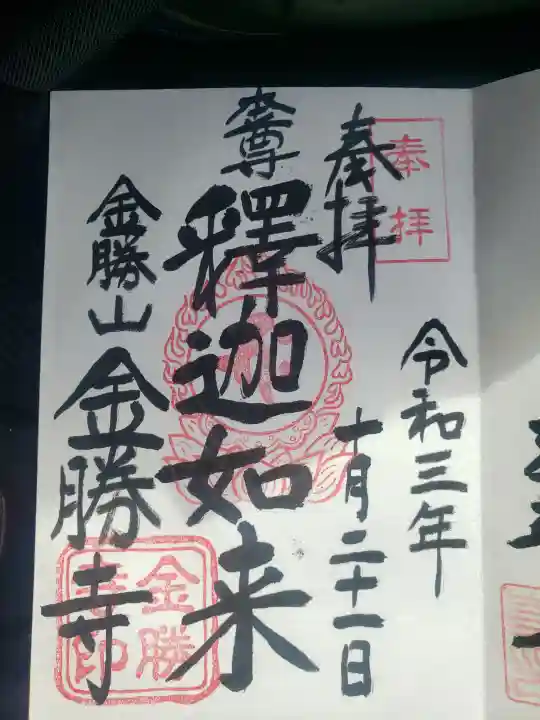 奉拝
奉拝
令和三年
十月二十一日
本尊
釋迦如来
金勝山
金勝寺
金勝
寺印